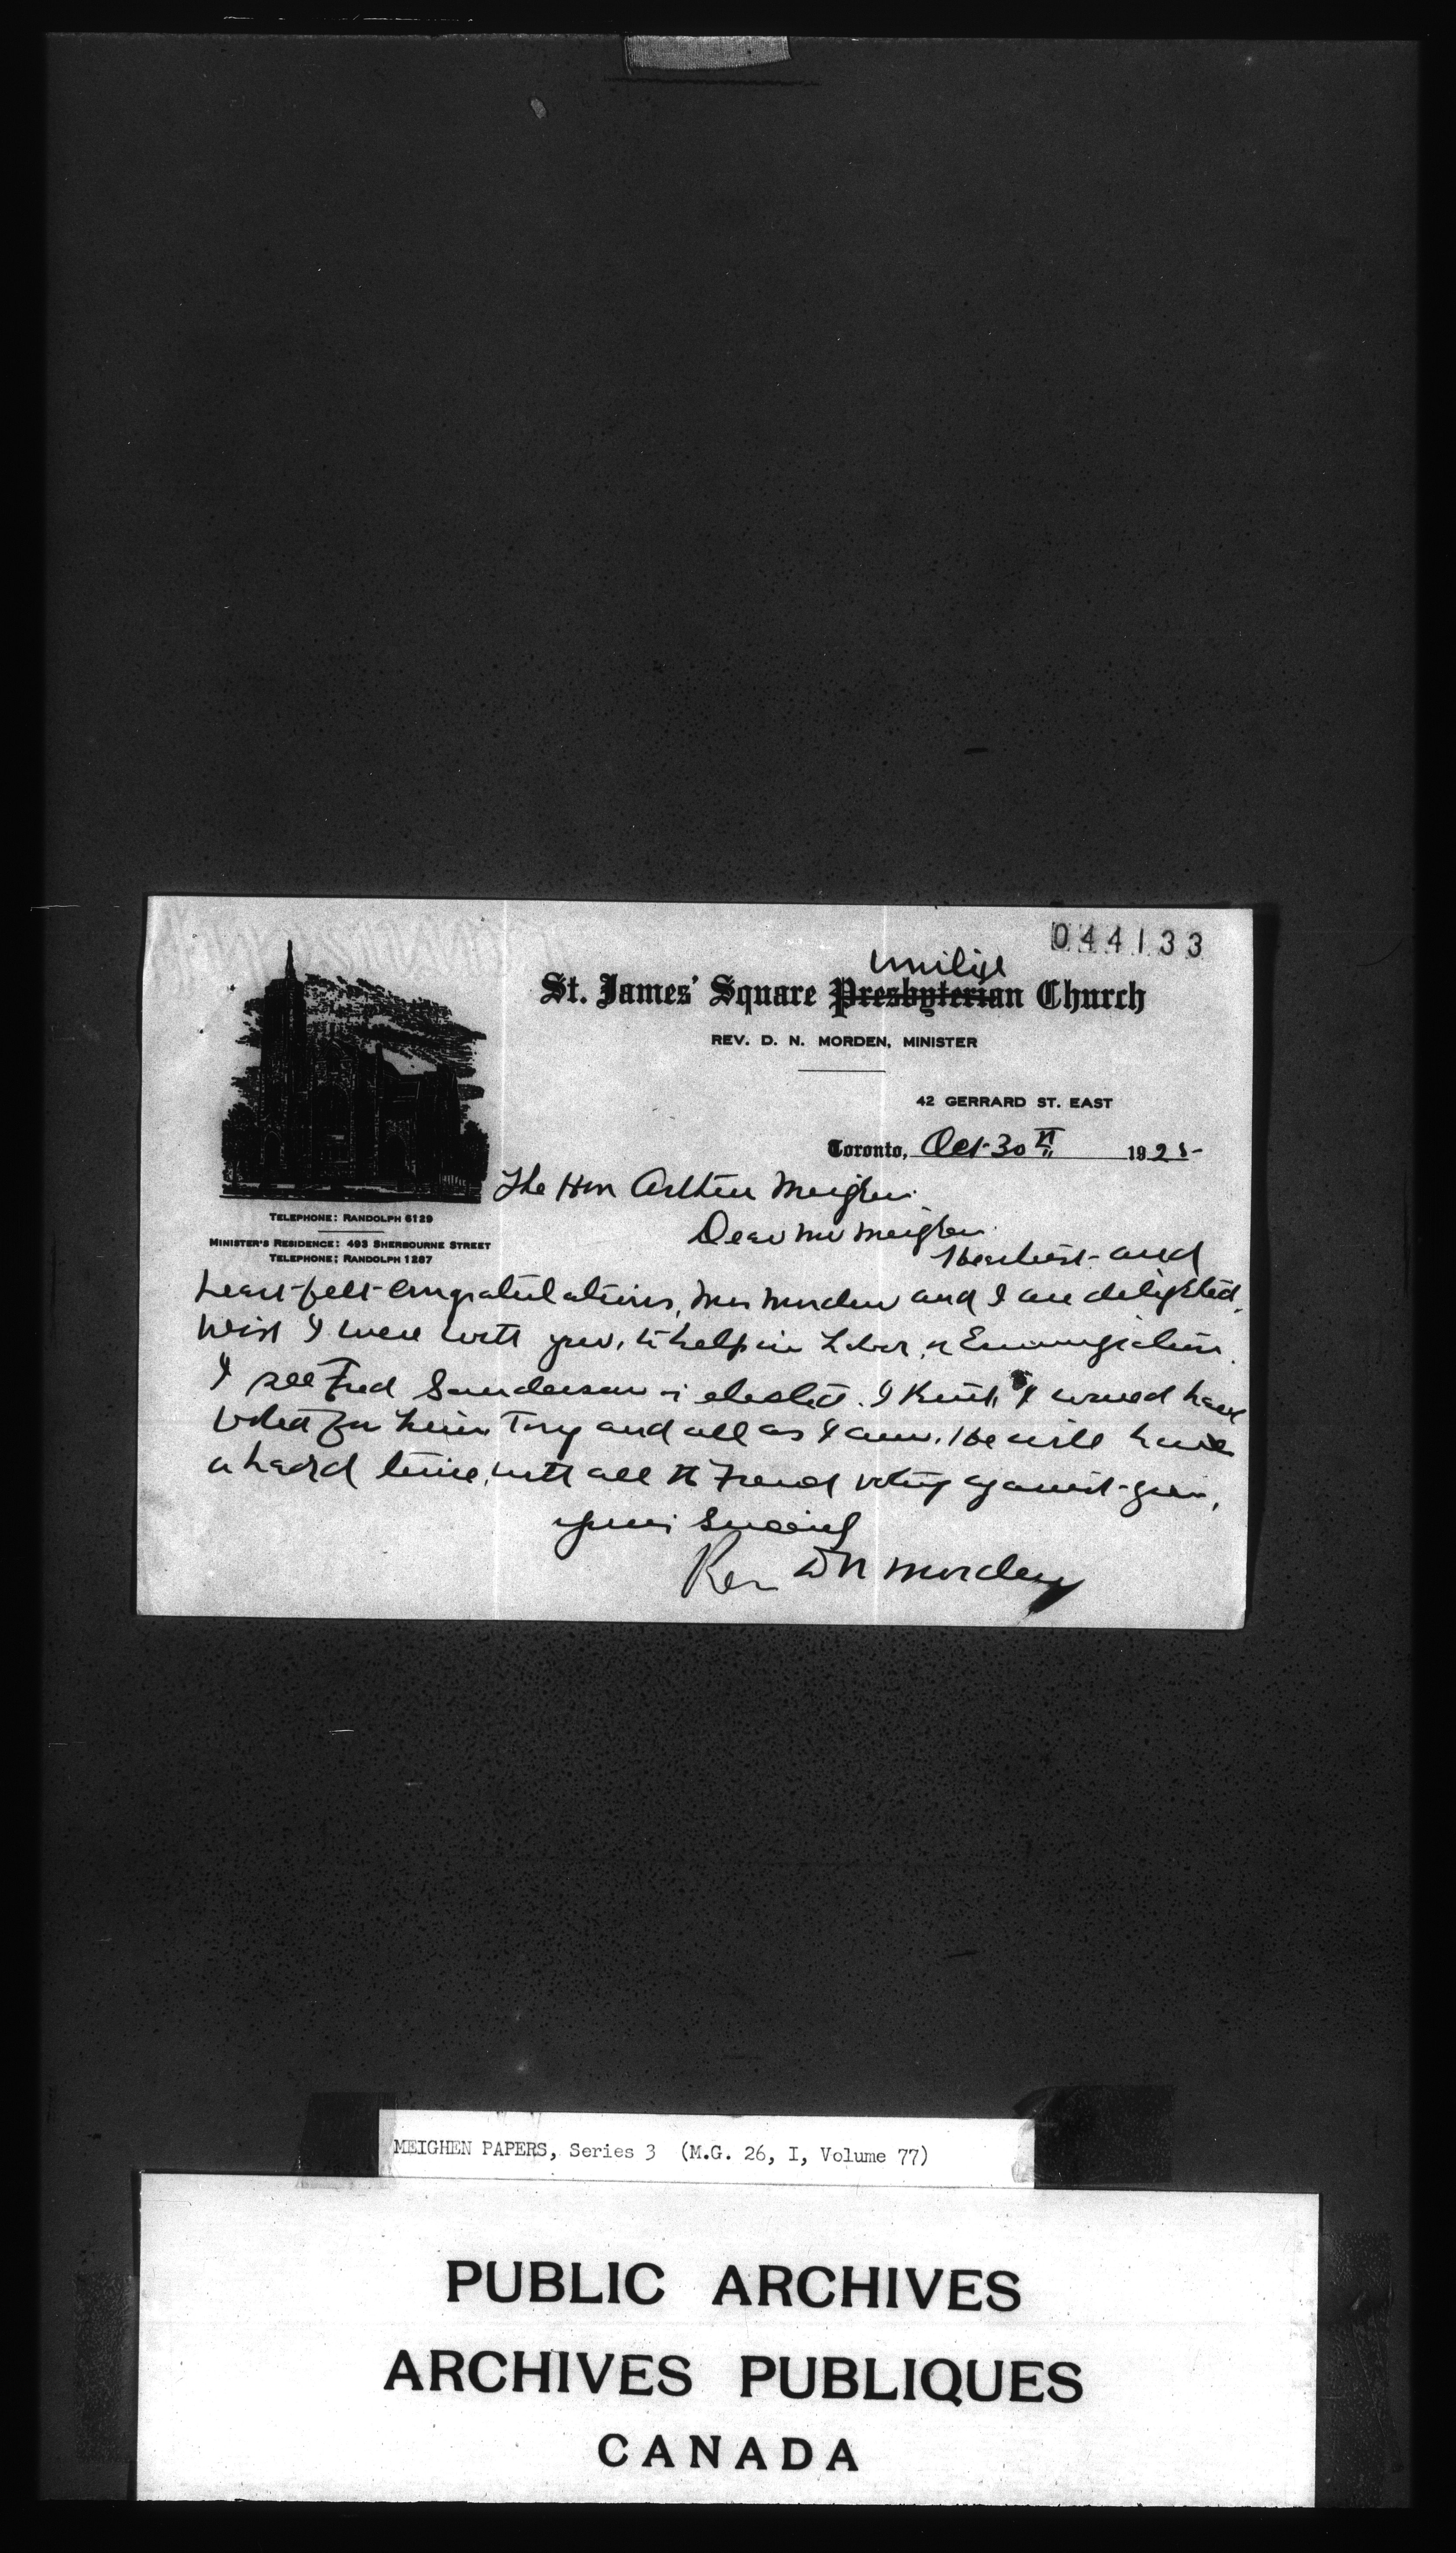 044133
United
St. James' Square Presbyterian Church
REV. D. N. MORDEN, MINISTER
42 GERRARD ST. EAST
Toronto, Oct 30th 1925
TELEPHONE: RANDOLPH 6129
MINISTER'S RESIDENCE: 493 SHERBOURNE STREET
TELEPHONE: RANDOLPH 1287
The Hon Arthur Meighen.
Dear Mr Meighen.
Heartiest and
heart-felt congratulations, Mrs Morden and I are delighted.
Wish I were with you, to help in Labor, or Emmigration.
I see Fred Sanderson is elected. I think I would have
voted for him Tory and all as I am. He will have
a hard time, with all the French voting against you,
yours Sincerely
Rev D N Morden
MEIGHEN PAPERS, Series 3 (M.G. 26, I, Volume 77)
PUBLIC ARCHIVES
ARCHIVES PUBLIQUES
CANADA